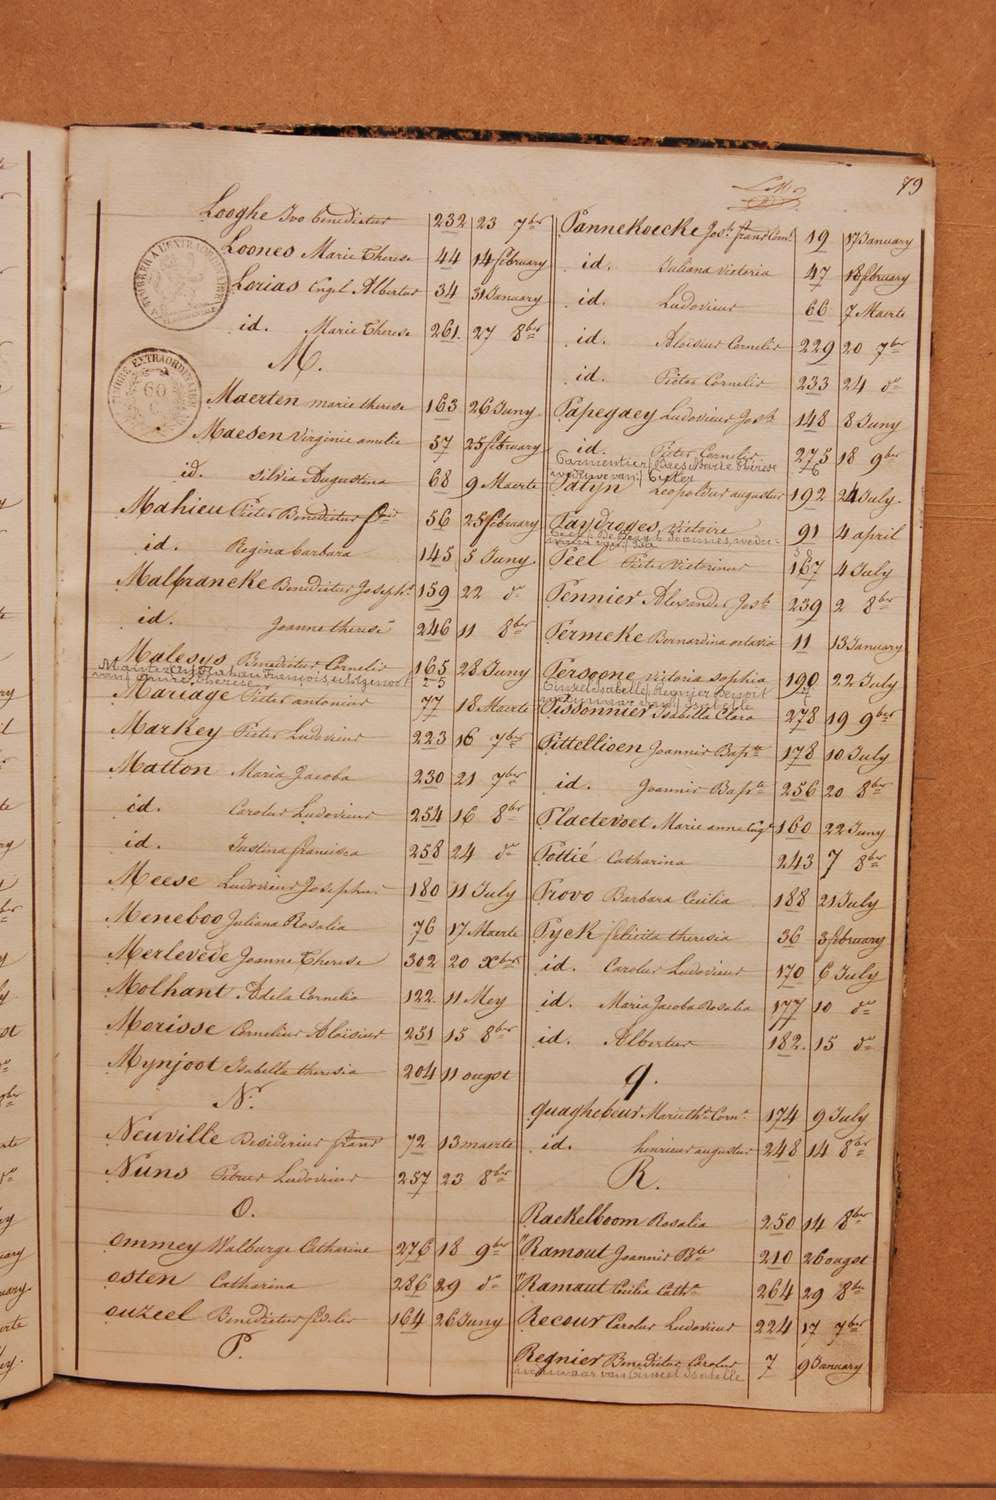 79
Looghe Ivo Benedictus 232 23 7ber
Loones Marie Therese 44 14 february
Lorias Engel Albertus 34 31 January
id. Marie Therese 261. 27 8ber
M.
Maerten marie therese 163 26 Juny
Maesen Virginie amelie 57 25 february
id. Silvia Augustina 68 9 Maerte
Mahieu Pieter Benedictus 56 25 february
id. Regina barbara 145 5 Juny
Malfrancke Benedictus Joseph. 159 22 do
id. Joanne therese 246 11 8ber
Malesys Benedictus Cornelis 165 28 Juny
Mariage Pieter antonius 77 18 Maerte
Markey Pieter Ludovicus 223 16 7ber
Matton Maria Jacoba 230 21 7ber
id. Carolus Ludovicus 254 16 8ber
id. Justina francisca 258 24 do
Meese Ludovicus Josephus 180 11 July
Meneboo Juliana Rosalia 76 17 Maerte
Merlevede Joanne Therese 302 20 Xber
Molhant Adela Cornelia 122 11 Mey
Morisse Cornelius Aloisius 251 15 8ber
Mynjoot Isabella theresia 204 11 ougst
N.
Neuville Desiderius frans 72 13 maerte
Nuns Petrus Ludovicus 257 23 8ber
O.
Ommey Walburge Catharine 276 18 9ber
Osten Catharina 286 29 do
Ouzeel Benedictus fidelis 164 26 Juny
P.
Pannekoecke Josh. 19 17 January
id. Juliana Victoria 47 18 february
id. Ludovicus 66 7 Maerte
id. Aloisius Cornelis 229 20 7ber
id. Pieter Cornelis 233 24 do
Papegaey Ludovicus Josh 148 8 Juny
id. Pieter Cornelis 275 18 9ber
Parmentier Baes Marie Therese
weduwe van
Patyn Leopoldus augustus 192 24 July.
Paydroges Victoire 91 4 april
Peel Pieter Victorinus 167 4 July
Pennier Alexander Josh 239 2 8ber
Permeke Bernardina octavia 11 13 January
Persoone victoria sophia 190 22 July
Cinkel Isabelle Regnier Benoit
Pissonnier Isabella Clara 278 19 9ber
Pittellioen Joannis Bapte 178 10 July
id. Joannis Bapte 256 20 8ber
Plaetevoet Marie anne Eug. 160 22 Juny
Pottié Catharina 243 7 8ber
Provo Barbara Cecilia 188 21 July
Pyck felicita theresia 36 3 february
id. Carolus Ludovicus 170 6 July
id. Maria Jacoba Rosalia 177 10 do
id. Albertus 182. 15 do
q.
quaghebeur Marie th. Corn. 174 9 July
id. henricus augustus 248 14 8ber
R.
Raekelboom Rosalia 250 14 8ber
"Ramout Joannis Bte 210 26 ougst
"Ramaut Cecilia Catha 264 29 8ber
Recour Carolus Ludovicus 224 17 7ber
Regnier Benedictus Carolus 7 9 January
weduwaar van Cinkel Isabelle